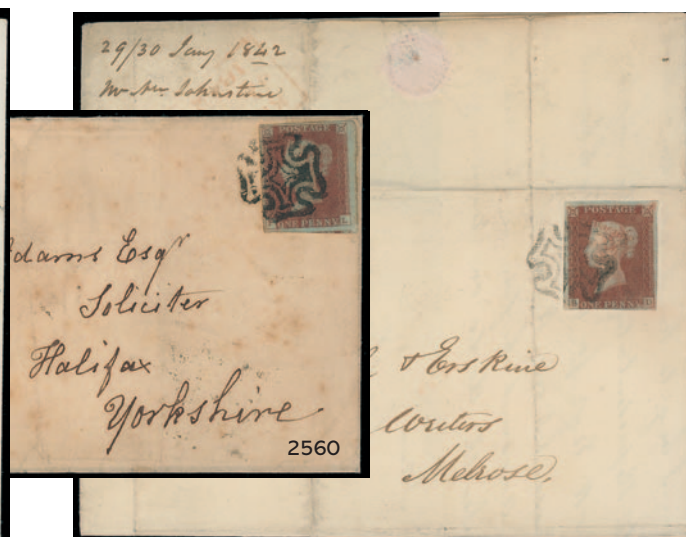 29/30 Jany 1842
Mr Wm Johnstone
POSTAGE
ONE PENNY L
dams Esqr
Soliciter
Halifax
Yorkshire
2560
POSTAGE
ONE PENNY
& Erskine
Writers
Melrose.